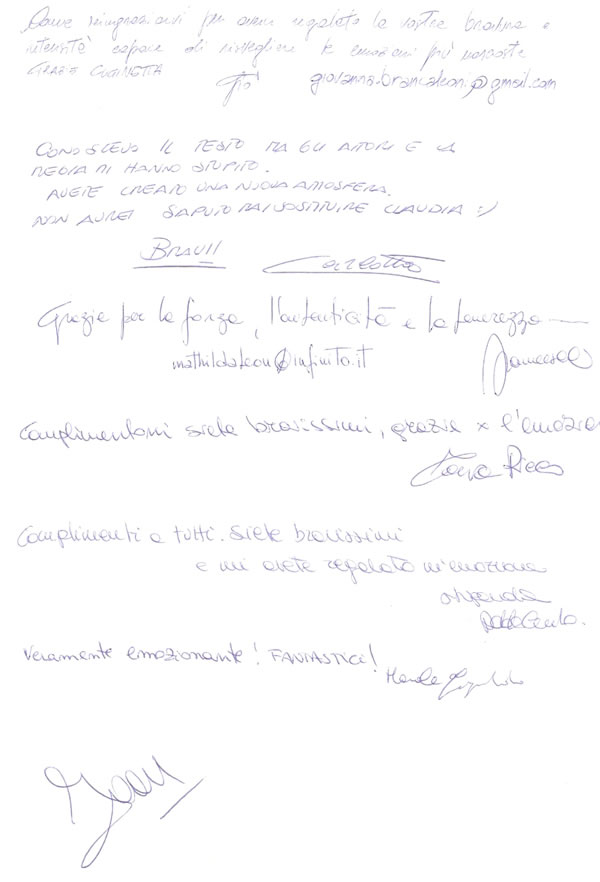 per aver regalato la vostra bravura e
intensità capace di risvegliare le emozioni più nascoste
GRAZIE CUGINETTA
Giò giovanna.brancaleoni@gmail.com
CONOSCEVO IL TESTO MA GLI ATTORI E LA
REGIA MI HANNO STUPITO.
AVETE CREATO UNA NUOVA ATMOSFERA.
NON AVREI SAPUTO MAI SOSTITUIRE CLAUDIA :)
BRAVI! Carlotta
Grazie per la forza, l'autenticità e la tenerezza
mathildaleon@infinito.it
Francesca
Complimentoni siete bravissimi, grazie x l'emozio
Complimenti a tutti. siete bravissimi
e mi avete regalato un'emozione
stupenda
Veramente emozionante! FANTASTICI!